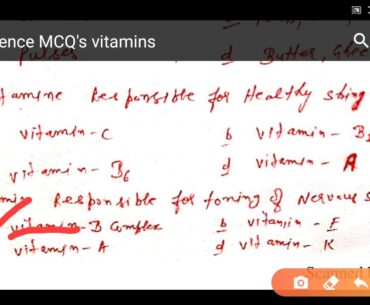 ence MCQ's vitamins
Pulses d Butter, Ghee
tamine Responsible for Healthy
vitamin-C b vitamin-B
vitamin-B6 d vitamin-A
Responsible for foming of Nervous s
vitamin-B Complex b vitamin-E
vitamin-A d vitamin-K
Scanned